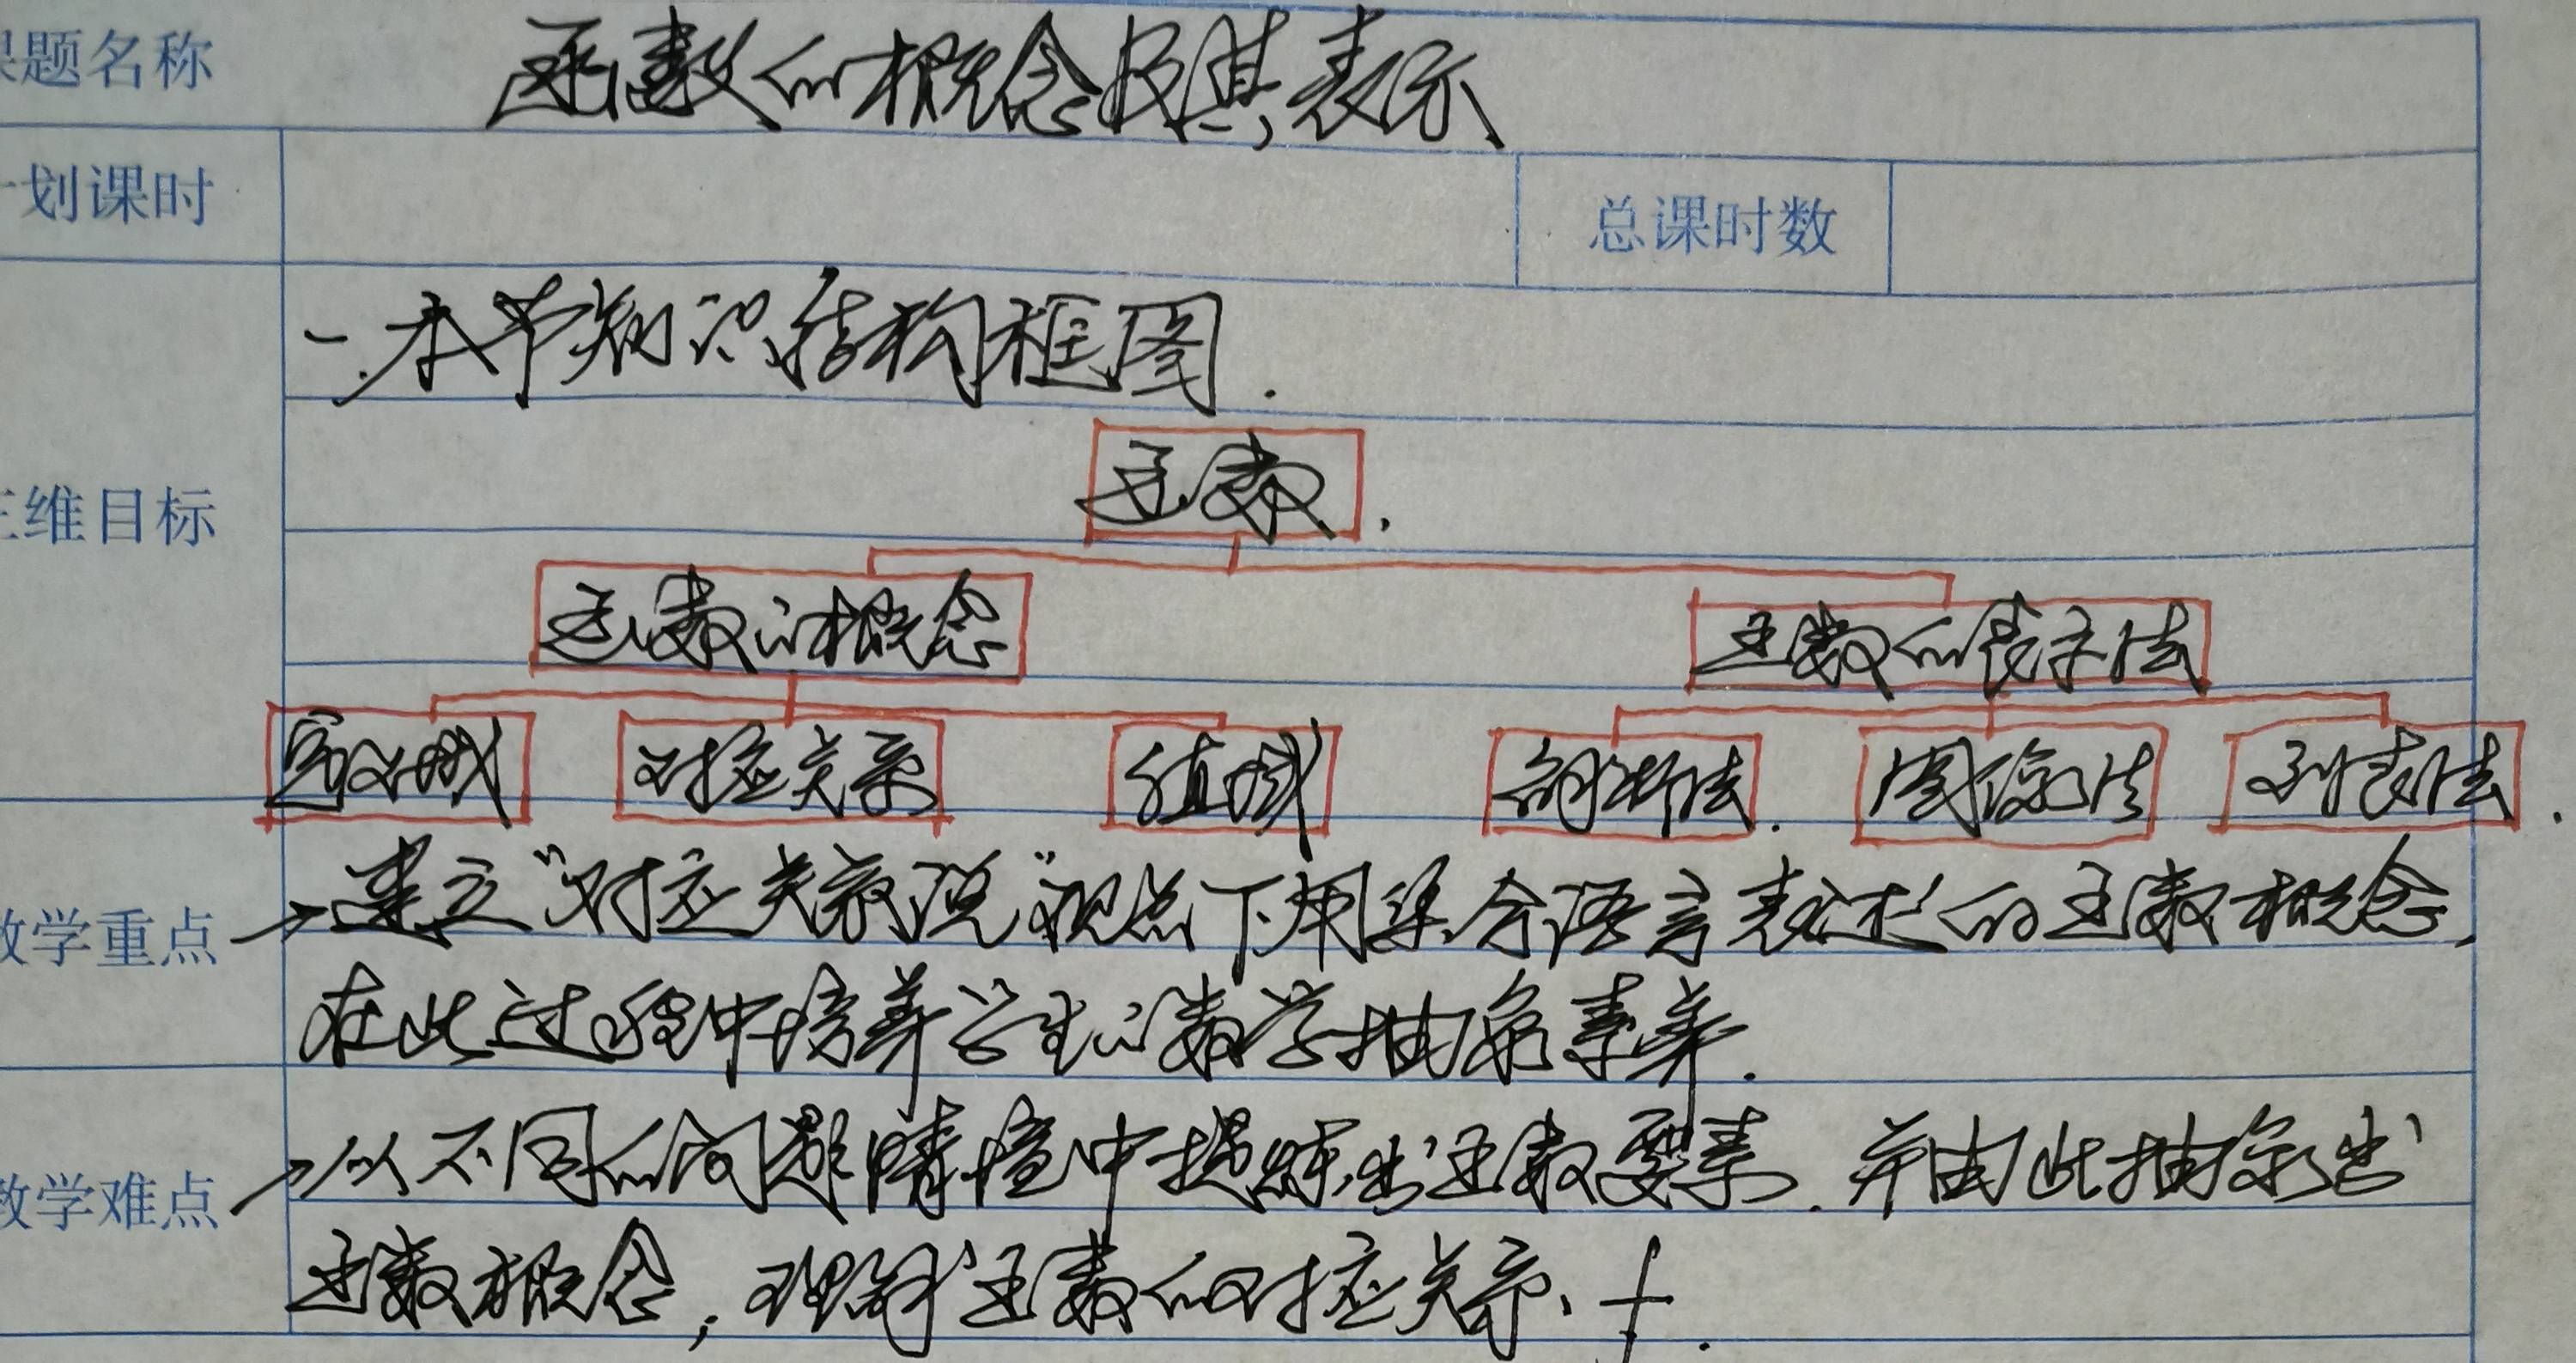 课题名称 函数的概念及其表示
计划课时 总课时数
一.本节知识结构框图.
三维目标
函数.
函数的概念 函数的表示法
定义域 对应关系 值域 解析法. 图像法 列表法.
教学重点 →建立"对应关系说"观点下用集合语言表述的函数概念,
在此过程中培养学生的数学抽象素养.
教学难点 →从不同的问题情境中提炼出函数要素.并由此抽象出
函数概念,理解函数的对应关系.f.